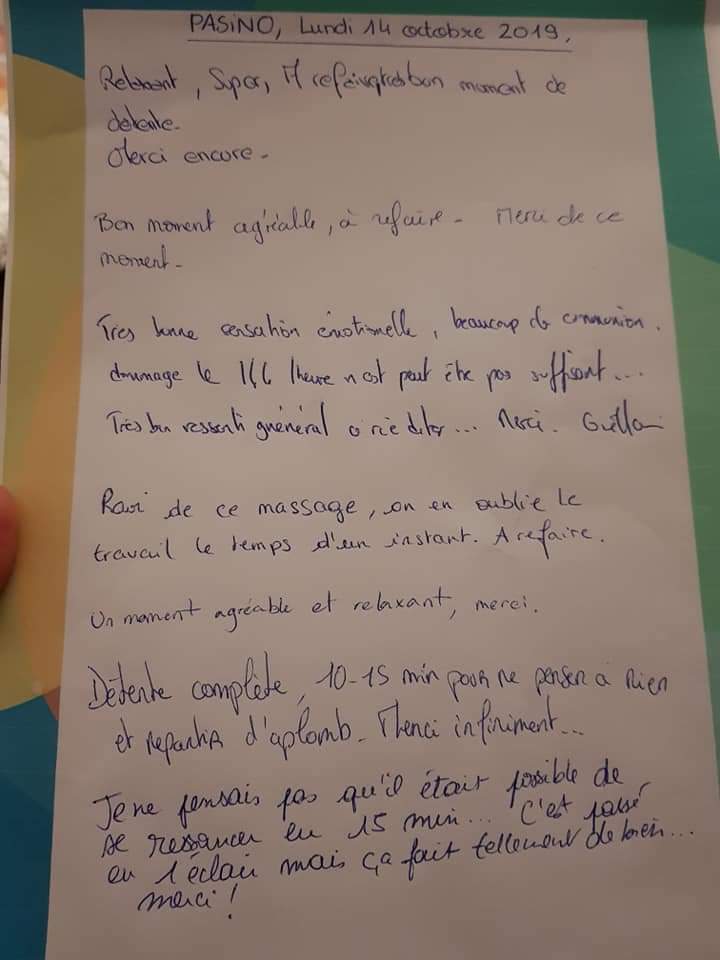 PASINO, Lundi 14 octobre 2019.
Relaxant, Super, bon moment de
détente.
Merci encore.
Bon moment agréable, à refaire. Merci de ce
moment.
Très bonne sensation émotionelle, beaucoup de communion.
dommage le 1/4 lheure n est peut être pas suffisant...
Très bon ressenti guénéral a rééditer... Merci.
Ravi de ce massage, on en oublie le
travail le temps d'un instant. A refaire.
Un moment agréable et relaxant, merci.
Détente complète, 10-15 min pour ne penser à rien
et repartir d'aplomb. Merci infiniment...
Je ne pensais pas qu'il était possible de
se ressourcer en 15 min... C'est passé
en 1 éclair mais ça fait tellement de bien...
merci !